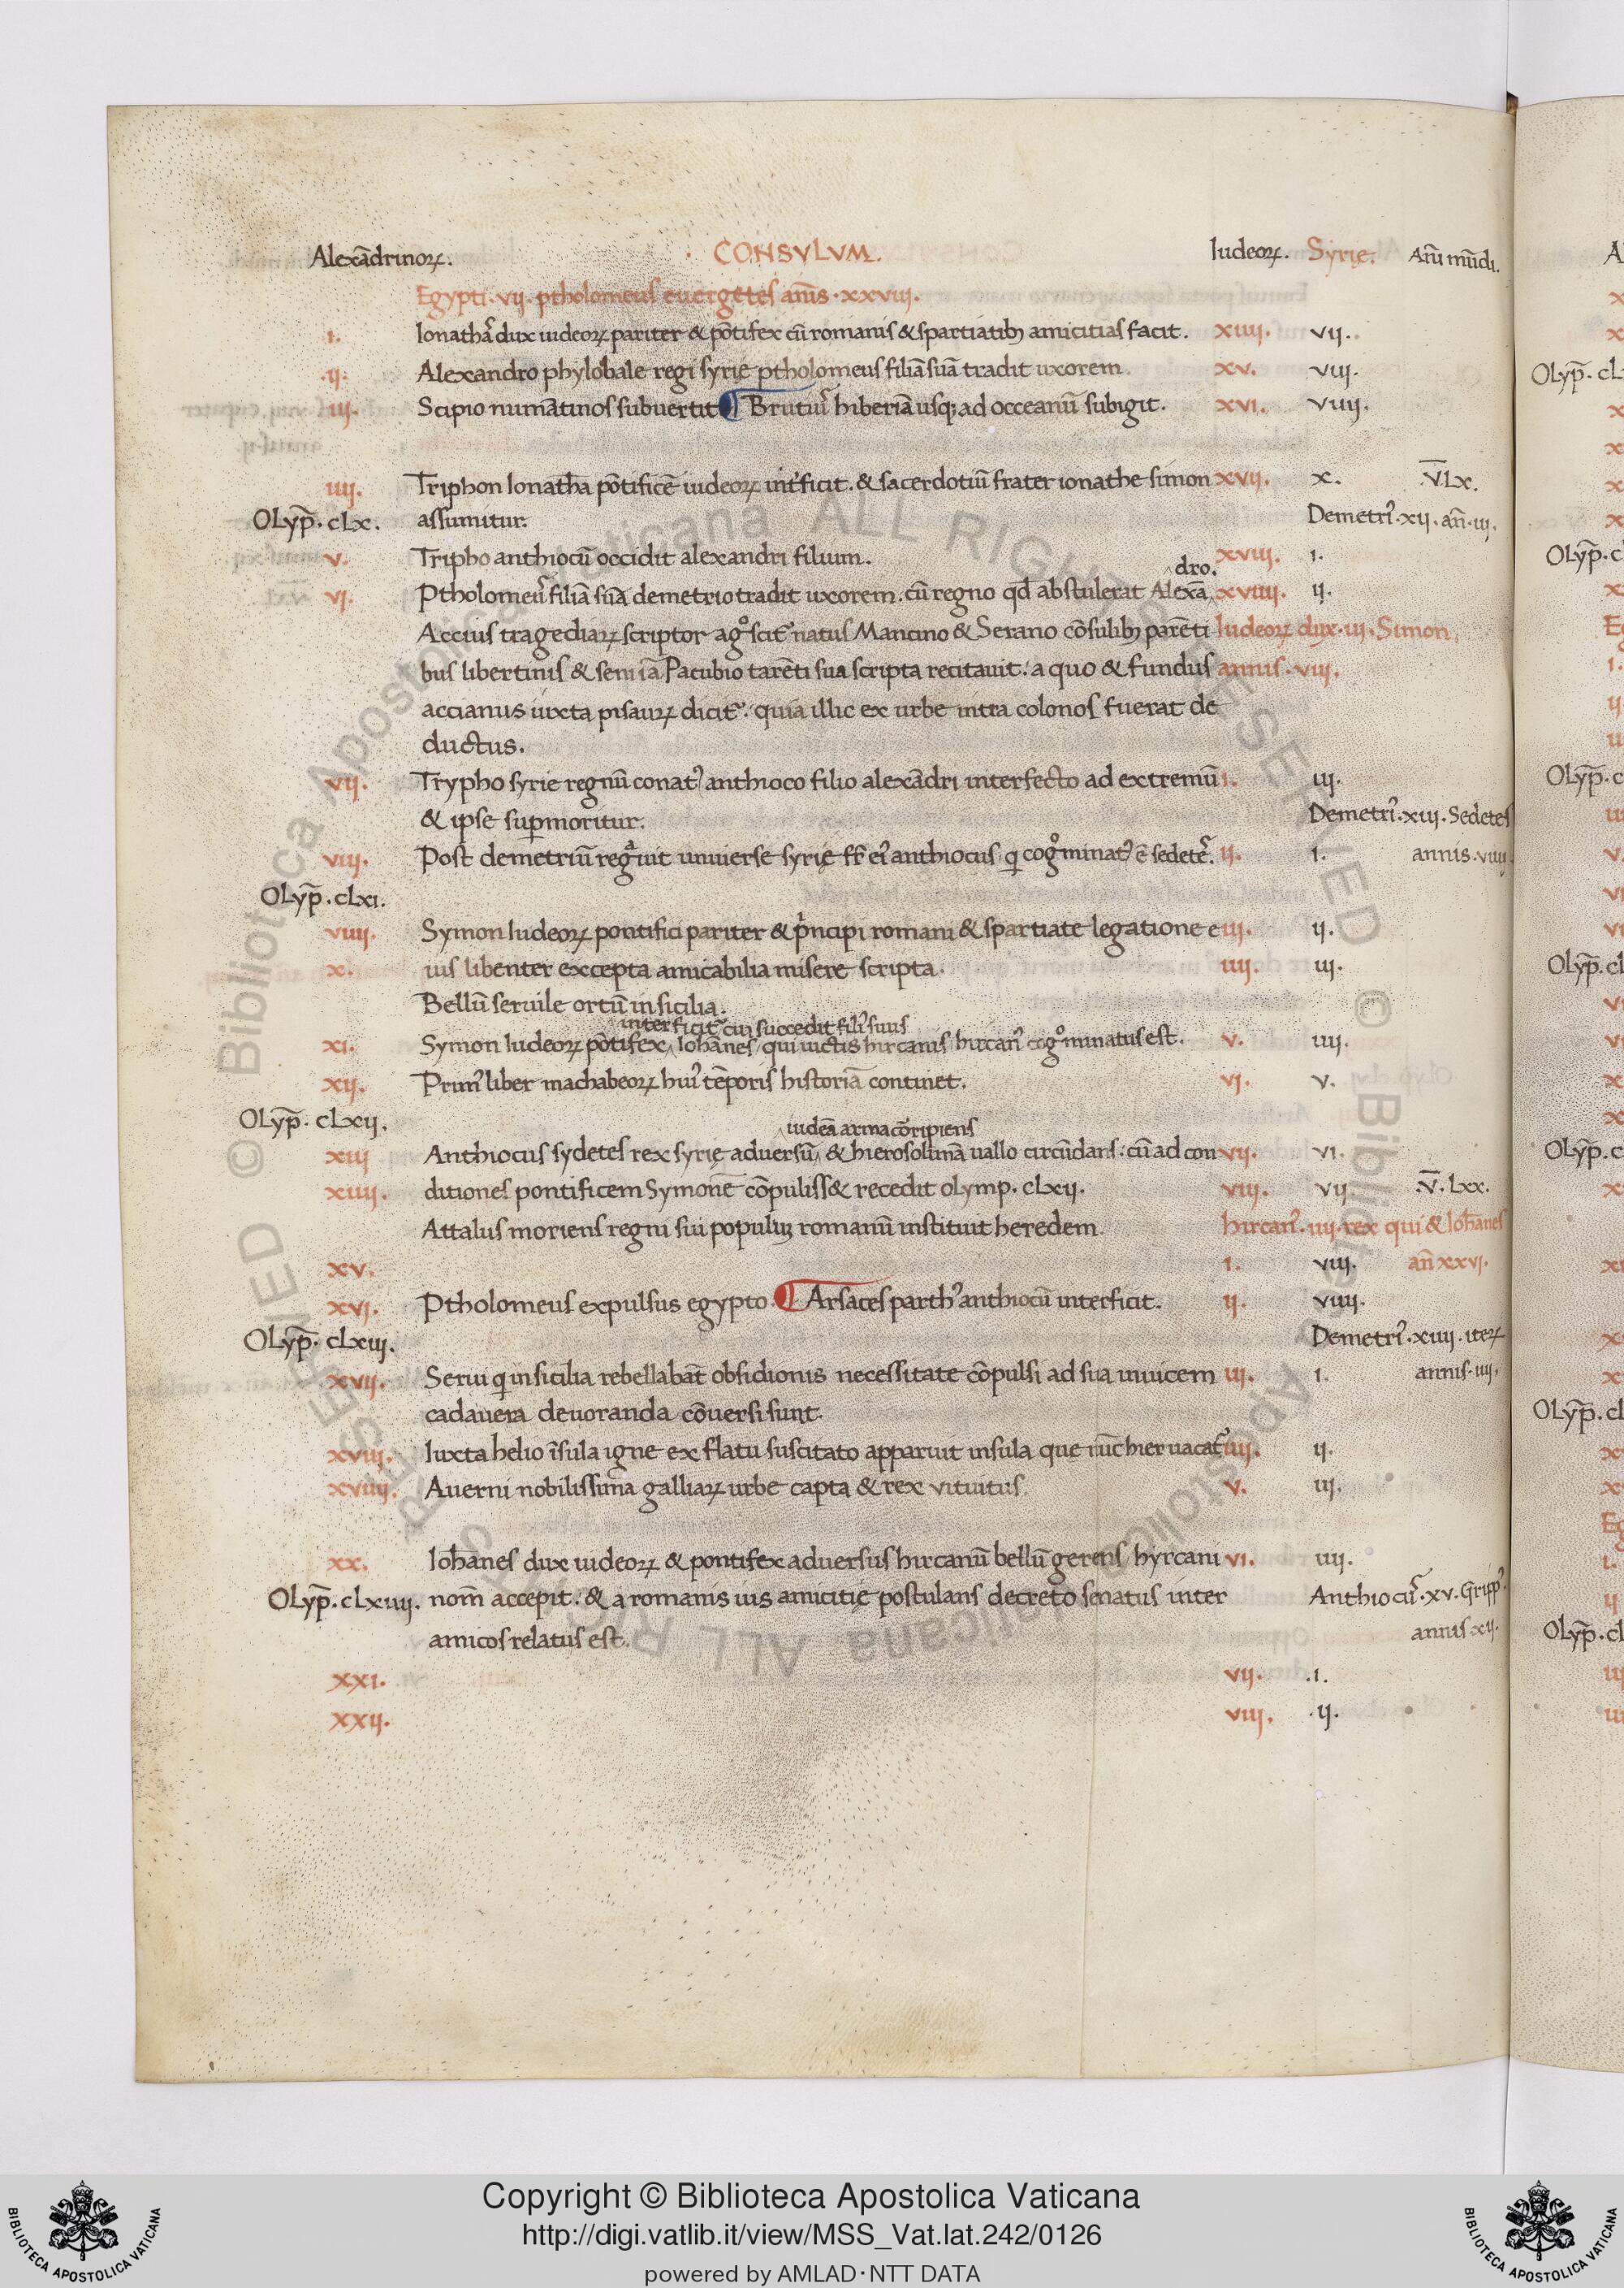 Alexādrinoꝝ. · CONSVLVM. Iudeoꝝ. Syrię. Añi mūdi.
Egypti · vij · ptholomeus euergetes annis · xxviij.
i. Ionathas̉ dux iudeoꝝ pariter & pōtifex cū romanis & spartiatibꝫ amicitias facit. xiiij. vij.
.ij. Alexandro phylobale regi syrie ptholomeus filiā suā tradit uxorem. xv. viij.
iij. Scipio numātinos subuertit ¶ Brutuſ hiberiā usqꝫ ad occeanū subigit. xvi. viiij.
iiij. Triphon Ionatha pōtificē iudeoꝝ int̉ficit. & sacerdotiū frater ionathe simon xvij. x. .V̄.Lx.
OLyp̄. cLx. assumitur. Demetri᾽. xij. añ. iij.
v. Tripho anthiocū occidit alexandri filium. xviij. i.
dro.
vj. Ptholomeus̉ filiā suā demetrio tradit uxorem. cū regno qđ abstulerat Alexā xviiij. ij.
Accius tragediaꝝ scriptor agºscit᷑ natus Mancino & Serano cōsulibꝫ parēti Iudeoꝝ dux. iij. Simon
bus libertinis & seni iā Pacubio tarēti sua scripta recitauit. a quo & fundus annis. viij.
accianus iuxta pisauꝝ dicit᷑. quia illic ex urbe intra colonos fuerat de
ductus.
vij. Trypho syrie regnū conat᾽ anthioco filio alexādri interfecto ad extremū i. iij.
& ipse suꝑmoritur. Demetri᾽. xiij. Sedetes
viij. Post demetriū regᵃuit uniuerse syrię fr̄ ei᾽ anthiocus qi cogºminat᾽ ē sedetes̉. ij. i. annis. viiij
OLyp̄. cLxi.
viiij. Symon Iudeoꝝ pontifici pariter & pͥncipi romani & spartiate legatione e iij. ij.
x. ius libenter excepta amicabilia misere scripta. iiij. iij.
Bellū seruile ortū in sicilia.
interficit᷑ cui succedit fili᾽ suus
xi. Symon Iudeoꝝ pōtifex Iohānes qui uictis hircanis hircan᾽ cogºminatus est. v. iiij.
xij. Prim᾽ liber machabeoꝝ hui᾽ tēporis historiā continet. vj. v.
OLyp̄. cLxij.
iudeā arma cōripiens
xiij Anthiocus sydetes rex syrię aduersū & hierosolimā uallo circūdans. cū ad con vij. vi.
xiiij. ditiones pontificem Symonē cōpuliss& recedit olymp. cLxij. viij. vij .V̄. Lxx.
Attalus moriens regni sui populuꝫ romanū instituit heredem. hircan᾽. iiij. rex qui & Ioh̄anes
xv. i. viij. añ xxvj.
xvj. Ptholomeus expulsus egypto. ¶ Arsaces parth᾽ anthiocū interficit. ij. viiij.
OLyp̄. cLxiij. Demetri᾽. xiiij. iteꝝ
xvij. Serui qi in sicilia rebellabāt obsidionis necessitate cōpulsi ad sua inuicem iij. i. annis. iiij.
cadauera deuoranda cōuersi sunt.
xviij. Iuxta helio īsula igne ex flatu suscitato apparuit insula que nūc hier uacat᷑ iiij. ij.
xviiij. Auerni nobilissima galliaꝝ urbe capta & rex vituitus. v. iij.
xx. Ioh̄anes dux iudeoꝝ & pontifex aduersus hircanū bellū gerens hyrcani vi. iiij.
OLyp̄. cLxiiij. nom̄ accepit. & a romanis uis amicitię postulans decreto senatus inter Anthiocus̉. xv. Gripp᾽.
amicos relatus est. annis. xij.
xxi. vij. .i.
xxij. viij. .ij.
Copyright © Biblioteca Apostolica Vaticana
http://digi.vatlib.it/view/MSS_Vat.lat.242/0126
powered by AMLAD·NTT DATA
BIBLIOTECA APOSTOLICA VATICANA
BIBLIOTECA APOSTOLICA VATICANA